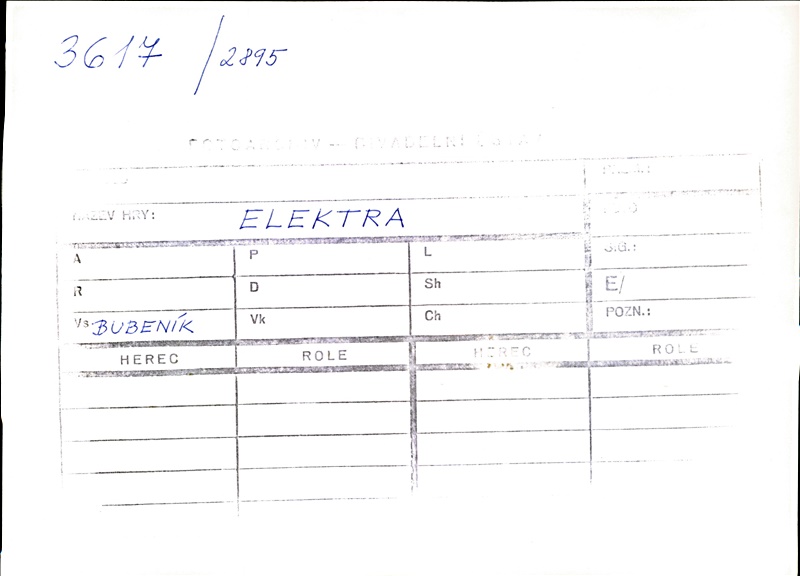 3617 / 2895
FOTOARCHIV - DIVADELNÍ ÚSTAV
NÁZEV HRY: ELEKTRA
A P L S.G.:
R D Sh E/
Vs. BUBENÍK Vk Ch POZN.:
HEREC ROLE HEREC ROLE